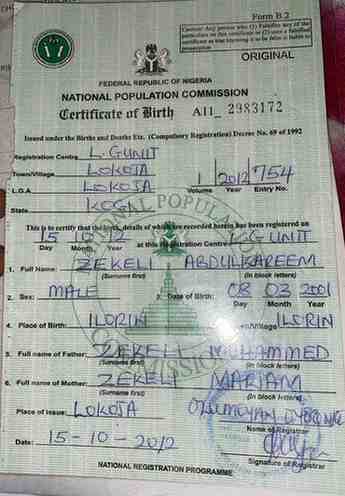 Form B 2
Caution: Any person who (1) Falsifies any of the
particulars on this certificate or (2) uses a falsified
certificate as true knowing it to be false is liable to
prosecution
ORIGINAL
FEDERAL REPUBLIC OF NIGERIA
NATIONAL POPULATION COMMISSION
Certificate of Birth A11 2983172
Issued under the Births and Deaths Etc. (Compulsory Registration) Decree No. 69 of 1992
Registration Centre L. GUNIT
Town/Village LOKOJA 1 2012 754
L.G.A LOKOJA Volume Year Entry No.
State KOGI
This is to certify that the birth, details of which are recorded herein has been registered on
15 10 12 at this Registration Centre L. GUNIT
Day Month Year
1. Full Name: ZEKELI ABDULKAREEM
(Surname first) (In block letters)
2. Sex: MALE 3. Date of Birth: 08 03 2001
Day Month Year
4. Place of Birth: ILORIN Town/Village ILORIN
5. Full name of Father: ZEKELI MUHAMMED
(Surname first) (In block letters)
6. Full name of Mother: ZEKELI MARIAM
(Surname first) (In block letters)
Place of Issue: LOKOJA
Name of Registrar
Date: 15-10-2012
Signature of Registrar
NATIONAL REGISTRATION PROGRAMME